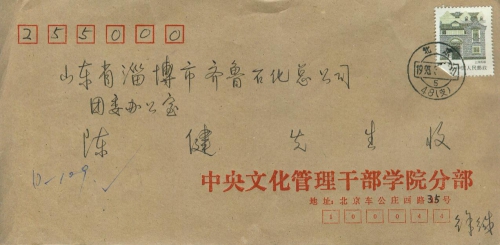 255000
山东省淄博市齐鲁石化总公司
团委办公室
陈 健 先 生 收
D-109
中央文化管理干部学院分部
地址:北京车公庄西路35号
100044
徐